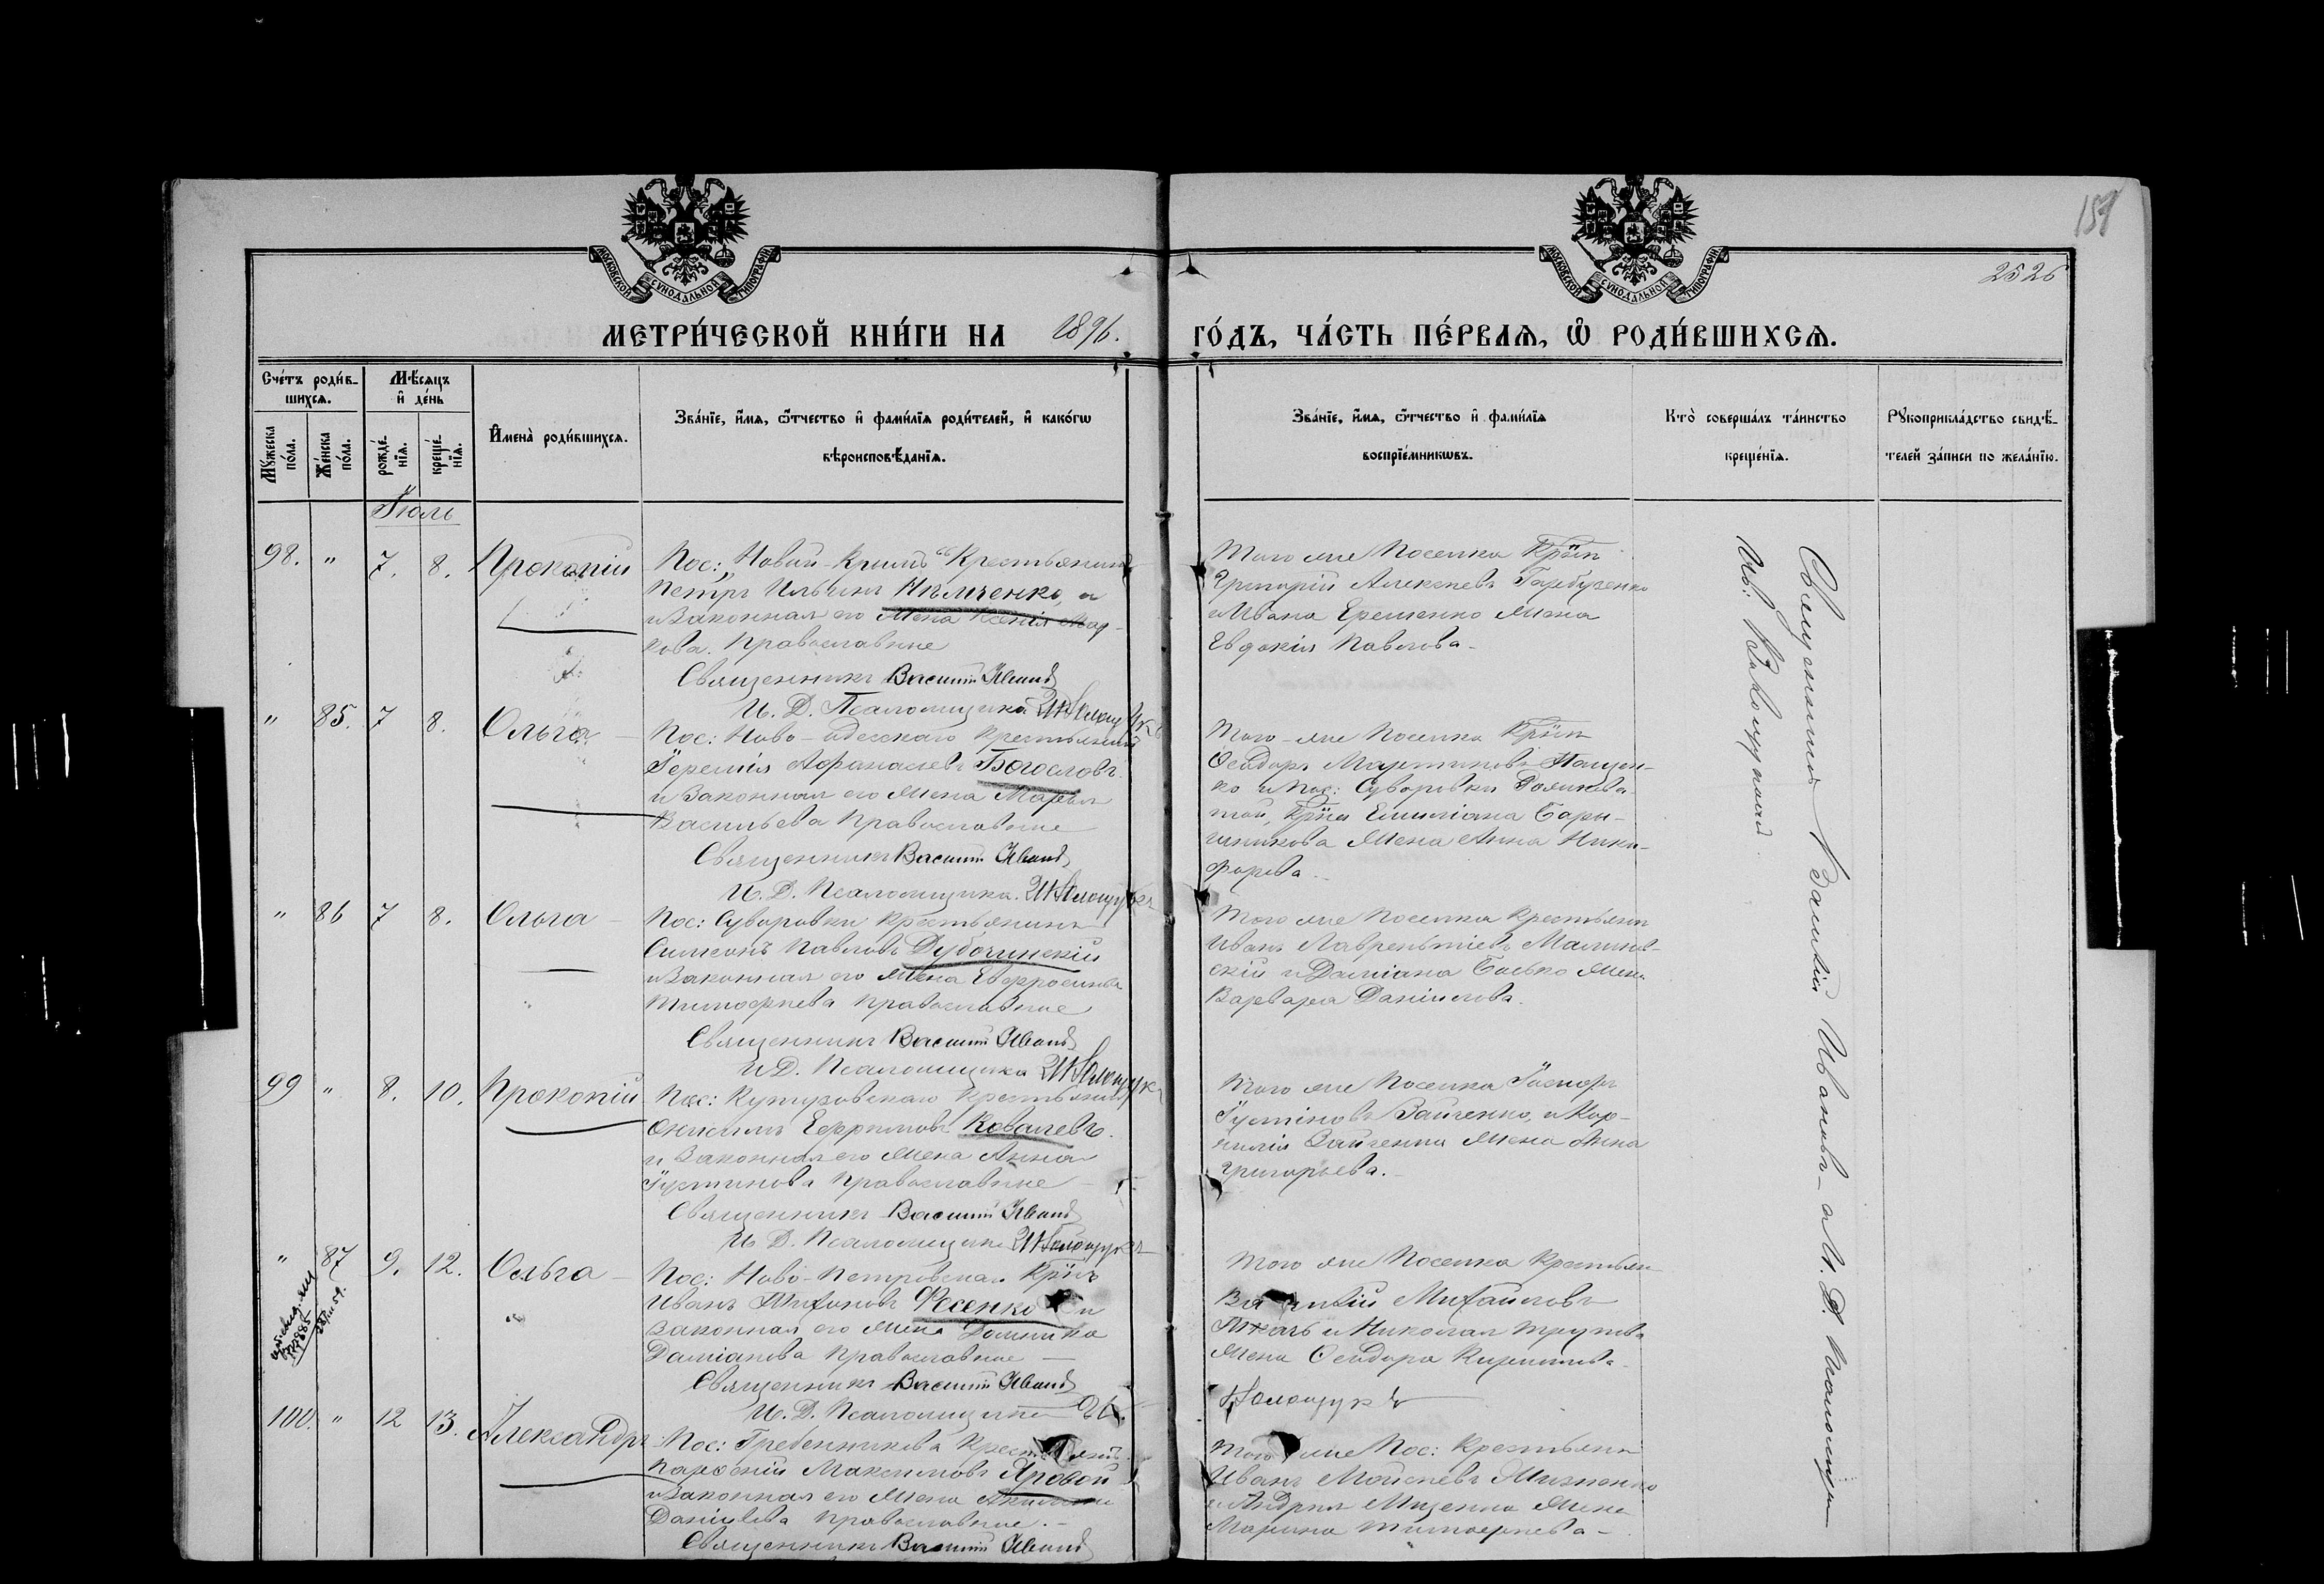 151
2526
МОСКОВСКОЙ СѴНОДАЛЬНОЙ ТИПОГРАФІИ
МОСКОВСКОЙ СѴНОДАЛЬНОЙ ТИПОГРАФІИ
МЕТРИ́ЧЕСКОЙ КНИ́ГИ НА 1896.
ГО́ДЪ, ЧА́СТЬ ПЕ́РВАЯ, Ѽ РОДИ́ВШИХСЯ.
Сче́тъ роди́в-
шихся.
Мꙋ́жеска по́ла.
Же́нска по́ла.
Мѣ́сяцъ и҆ де́нь
рожде́-
нїя.
креще́-
нїя.
И҆мена̀ роди́вшихся.
Зва́нїе, и҆́мя, ѻ҆́тчество и҆ фами́лїя роди́телей, и҆ како́гѡ
вѣроисповѣ́данїя.
Зва́нїе, и҆́мя, ѻ҆́тчество и҆ фами́лїя
воспрїе́мникѡвъ.
Кто̀ соверша́лъ та́инство
креще́нїя.
Рꙋкоприкла́дство свидѣ́-
телей за́писи по жела́нїю.
Іюль
98. " 7. 8. Прокопій
Пос: „Новый-Крымъ" Крестьянинъ
Петръ Ильинъ Нѣмченко, а
и Законная его Жена Ксенія Мар-
кова. Православные
Священникъ Василій Иванов
И. Д. Псаломщика
Того же Поселка Кр-нъ
Григорій Алексѣевъ Гарбузенко
и Ивана Ерешенко Жена
Евдокія Павлова-
" 85. 7 8. Ольга
Пос: Ново-одесскаго Крестьянинъ
Іеремія Афанасіевъ Богословъ
и Законная его Жена Марья
Васильева Православные
Священникъ Василій Иванов
И. Д. Псаломщика.
Того-же Поселка Кр-нъ
Ѳеодоръ Мартиновъ Пащен-
ко и Пос: Суворовки
Кр-на Емиліана Бары-
шникова Жена Анна Ники-
форова.
" 86 7 8. Ольга
Пос: Суворовки Крестьянинъ
Симеонъ Павловъ Дубочинскій
и Законная его Жена Евфросинья
Тимофеева Православные
Священникъ Василій Иванов
И Д. Псаломщика
Того же Поселка Крестьянинъ
Иванъ Лаврентіевъ Малинов-
скій и Даміана Бойко Жена
Варвара Даніилова.
99 " 8. 10. Прокопій
Пос: Кутузовскаго Крестьянинъ
Онисимъ Ефремовъ Ковалевъ.
и Законная его Жена Анна
Іустинова Православные
Священникъ Василій Иванов
И Д. Псаломщика
Того же Поселка Іосифъ
Іустиновъ Зайченко, и Кор-
нилія Зайченка Жена Анна
Григорьева.-
" 87 9. 12. Ольга
Пос: Ново-Петровскаго Кр-нъ
Иванъ Тихоновъ Фесенко и
Законная его Жена Домника
Даміанова Православные
Священникъ Василій Иванов
И. Д. Псаломщика
Того же Поселка Крестьян
Михайловъ
Ткачъ и Николая
Жена Ѳеодора Кириллова.
100. " 12 13. Александръ
Пос: Гребенникова
Парѳеній Максимовъ Яровой
и Законная его Жена
Даніилова Православные.-
Священникъ Василій Иванов
Того же Пос: Крестьянинъ
Иванъ Мойсѣевъ
и Андрея Мищенка Жена
Марина Тимофеева-
Священникъ Василій Ивановъ- а И. Д. Псаломщика